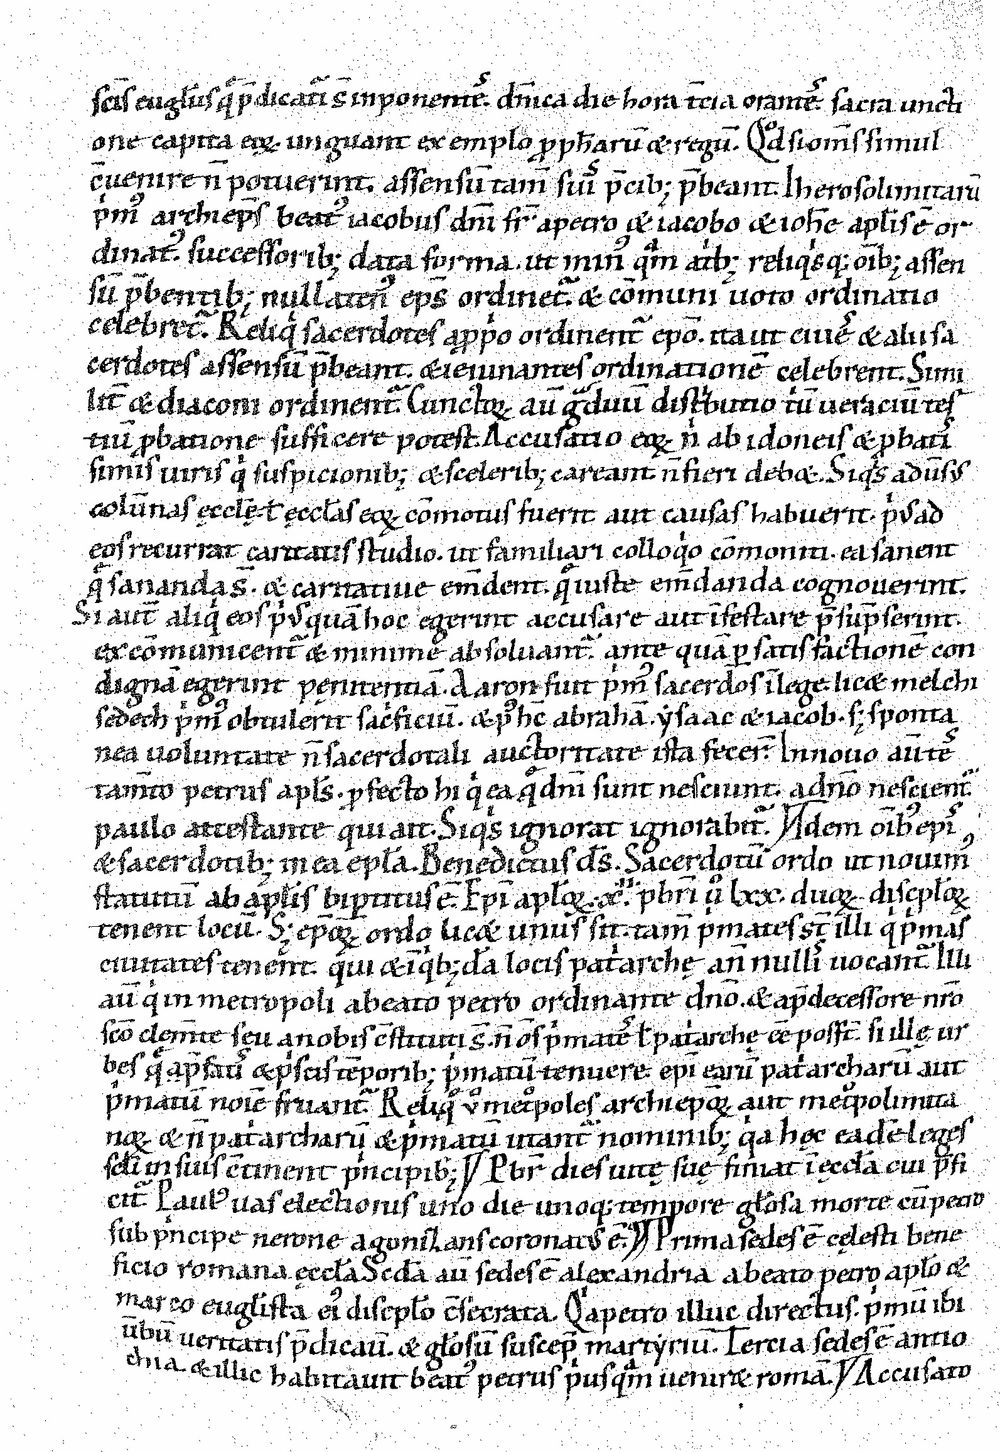 scis euglius q̄ p̄dicati s̄ inponentes. dn̄ica die hora tc̄ia orantes. sacra uncti
one capita eoꝝ. unguant exemplo ꝓphaꝝ & regū. Qd̄ si om̄s simul
c̄uenire n̄ potuerint. assensū tam̄ suis p̄cib; p̄beant. Iherosolimitarū
p̄m' archiep̄s beat' iacobus dn̄i fr̄ a petro & iacobo & ioh̄e aplis ē or
dinat'. successorib; data forma. ut min' q̄m a trib; reliqisq; oīb; assen
sū p̄bentib; nullaten' ep̄s ordinet. & cōmuni uoto ordinatio
celebret. Reliqi sacerdotes a ꝓp̄o ordinent epō. ita ut ciues & alii sa
cerdotes assensū p̄beant. & ieiunantes ordinationē celebrent. Simi
lit̄ & diaconi ordinent. Cunctoꝝ aū gduū distributio triū ueraciū tes
tiū ꝓbatione sufficere potest. Accusatio eoꝝ n̄ ab idoneis & ꝓbatis
simis uiris q̄ suspicionib; & sceleris; careant n̄ fieri deb&. Siq̄s adūsus
colūnas ęcclę ł ęcclas eoꝝ cōmotus fuerit aut causas habuerit. p'us ad
eos recurrat caritatis studio. ut familiari colloqio cōmoniti. ea sanent
q̄ sananda s̄. & caritatiue em̄dent. q̄ iuste em̄danda cognouerint.
Si aut̄ aliqi eos p'us quā hoc egerint accusare aut īfestare p̄sūpserint.
excōmunicent & minime absoluant. ante quā ꝑ satisfactionē con
dignā egerint penitentiā. Aaron fuit p̄m' sacerdos ī lege. lic& melchi
sedech p̄m' obtulerit sacficiū. & p' hc̄ abrahā. ysaac & iacob. s; sponta
nea uoluntate n̄ sacerdotali auctoritate ista fecer̄. In nouo aū tes
tam̄to petrus apls̄. ꝓfecto hi qi ea q̄ dn̄i sunt nesciunt. a dn̄o nescient.
paulo attestante qui ait. Siq̄s ignorat ignorabit. Idem oīb' epis
& sacerdotib; in ea epla. Benedictus d̄s. Sacerdotū ordo ut nouim'
statutū ab aplis bip̄titus ē. Epi aploꝝ. pbr̄i ū lxx. duoꝝ. discploꝝ
tenent locū. S; epoꝝ ordo lic& unus sit. tam̄ p̄mates s̄t illi qi p̄mas
ciuitates tenent. qui & ī qib;dā locis pat̄archę a nnullis uocant. Illi
aū qi in metropoli a beato petro ordinante dn̄o. & a p̄decessore nr̄o
sc̄o clem̄te seu a nobis c̄stituti s̄. n̄ om̄s p̄mates ł pat̄archę ee poss̄t. si illę ur
bes q̄ & p̄scis tēporib; p̄matū tenuere. epi eaꝝ pat̄archarū aut
p̄matū noīe fruant. Reliq̄ ū met̄poles archiepoꝝ aut met̄polimita
noꝝ & n̄ pat̄archarū & p̄matū utant nominib; q̄a hęc eadē leges
sc̄li in suis c̄tinent p̄ncipib; Pbr̄ dies uitę suę finiat ī ęccla cui p̄fi
cit. Paul' uas electionis uno die unoq; tempore głosa morte cū petro
sub p̄ncipe nerone agonizans coronatus ē. Prima sedes ē celesti bene
ficio romana ęccla Scd̄a aū sedes ē alexandria a beato petro aplo &
marco euglista ei' discplo c̄secrata. Q̄ a petro illuc directus. p̄mū ibi
ūbū ueritatis p̄dicauit. & głosū suscep̄ martyriū. Tercia sedes ē antio
chia. & illic habitauit beat' petrus p'usq̄m uenir& romā. Accusato